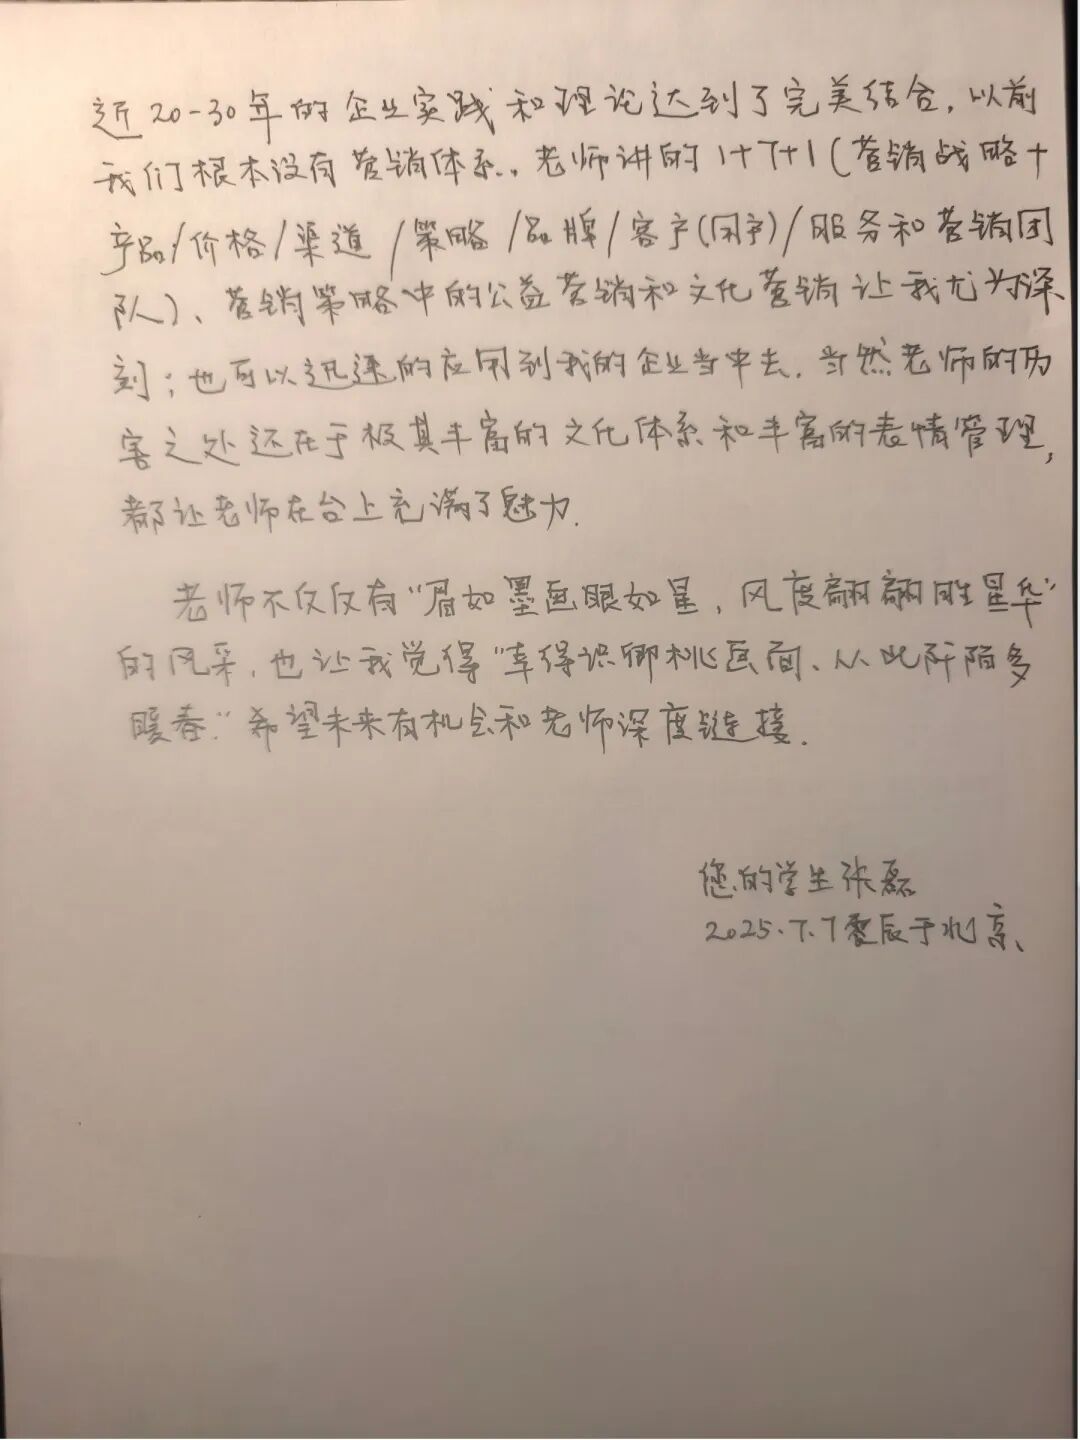 近20-30年的企业实践和理论达到了完美结合，以前
我们根本没有营销体系，老师讲的1+7+1（营销战略+
产品/价格/渠道/策略/品牌/客户(用户)/服务和营销团
队）、营销策略中的公益营销和文化营销让我尤为深
刻；也可以迅速的应用到我的企业当中去。当然老师的历
害之处还在于极其丰富的文化体系和丰富的表情管理，
都让老师在台上充满了魅力.
老师不仅仅有“眉如墨画眼如星，风度翩翩胜星华”
的风采，也让我觉得“幸得识卿桃花面、从此阡陌多
暖春.”希望未来有机会和老师深度链接.
您的学生张磊
2025.7.7 于北京、